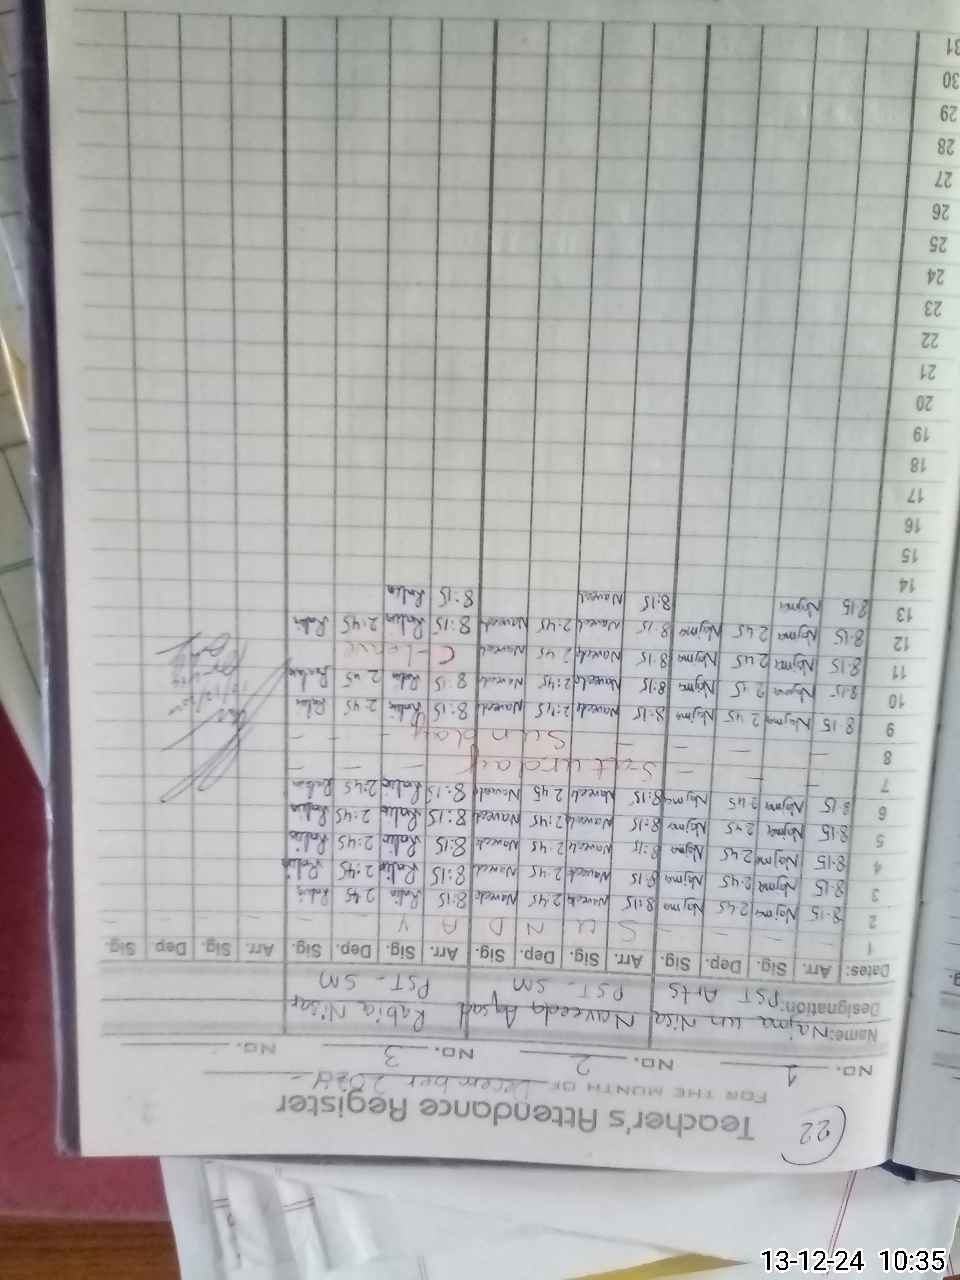 22
Teacher's Attendance Register
FOR THE MONTH OF December 2024
No. 1 No. 2 No. 3 No.
Name: Najma un Nisa Naveeda Rabia Nisar
Designation: PST Arts PST - SM PST - SM
Dates: Arr. Sig. Dep. Sig. Arr. Sig. Dep. Sig. Arr. Sig. Dep. Sig. Arr. Sig. Dep Sig.
1 — — — — S U N D A Y — — —
2 8:15 Najma 2 45 Najma 8:15 Naveeda 2:45 Naveeda 8:15 Rabia 2:45 Rabia
3 8:15 Najma 2:45 Najma 8:15 Naveeda 2:45 Naveed 8:15 Rabia 2:45 Rabia
4 8:15 Najma 2 45 Najma 8:15 Naveeda 2:45 Naveeda 8:15 Rabia 2:45 Rabia
5 8:15 Najma 2 45 Najma 8:15 Naveeda 2:45 Naveeda 8:15 Rabia 2:45 Rabia
6 8:15 Najma 2 45 Najma 8:15 Naveeda 2 45 Naveeda 8:15 Rabia 2:45 Rabia
7 — — — Saturday — — —
8 — — — — Sunday — — —
9 8 15 Najma 2 45 Najma 8:15 Naveeda 2:45 Naveeda 8:15 Rabia 2 45 Rabia
10 8:15 Najma 2 45 Najma 8:15 Naveeda 2:45 Naveeda 8 15 Rabia 2 45 Rabia
11 8:15 Najma 2 45 Najma 8:15 Naveeda 2 45 Naveed C-Leave
12 8:15 Najma 2 45 Najma 8 15 Naveed 2:45 Naveeda 8:15 Rabia 2:45 Rabia
13 8 15 Najma 8:15 Naveed 8:15 Rabia
14
15
16
17
18
19
20
21
22
23
24
25
26
27
28
29
30
31
13-12-24 10:35